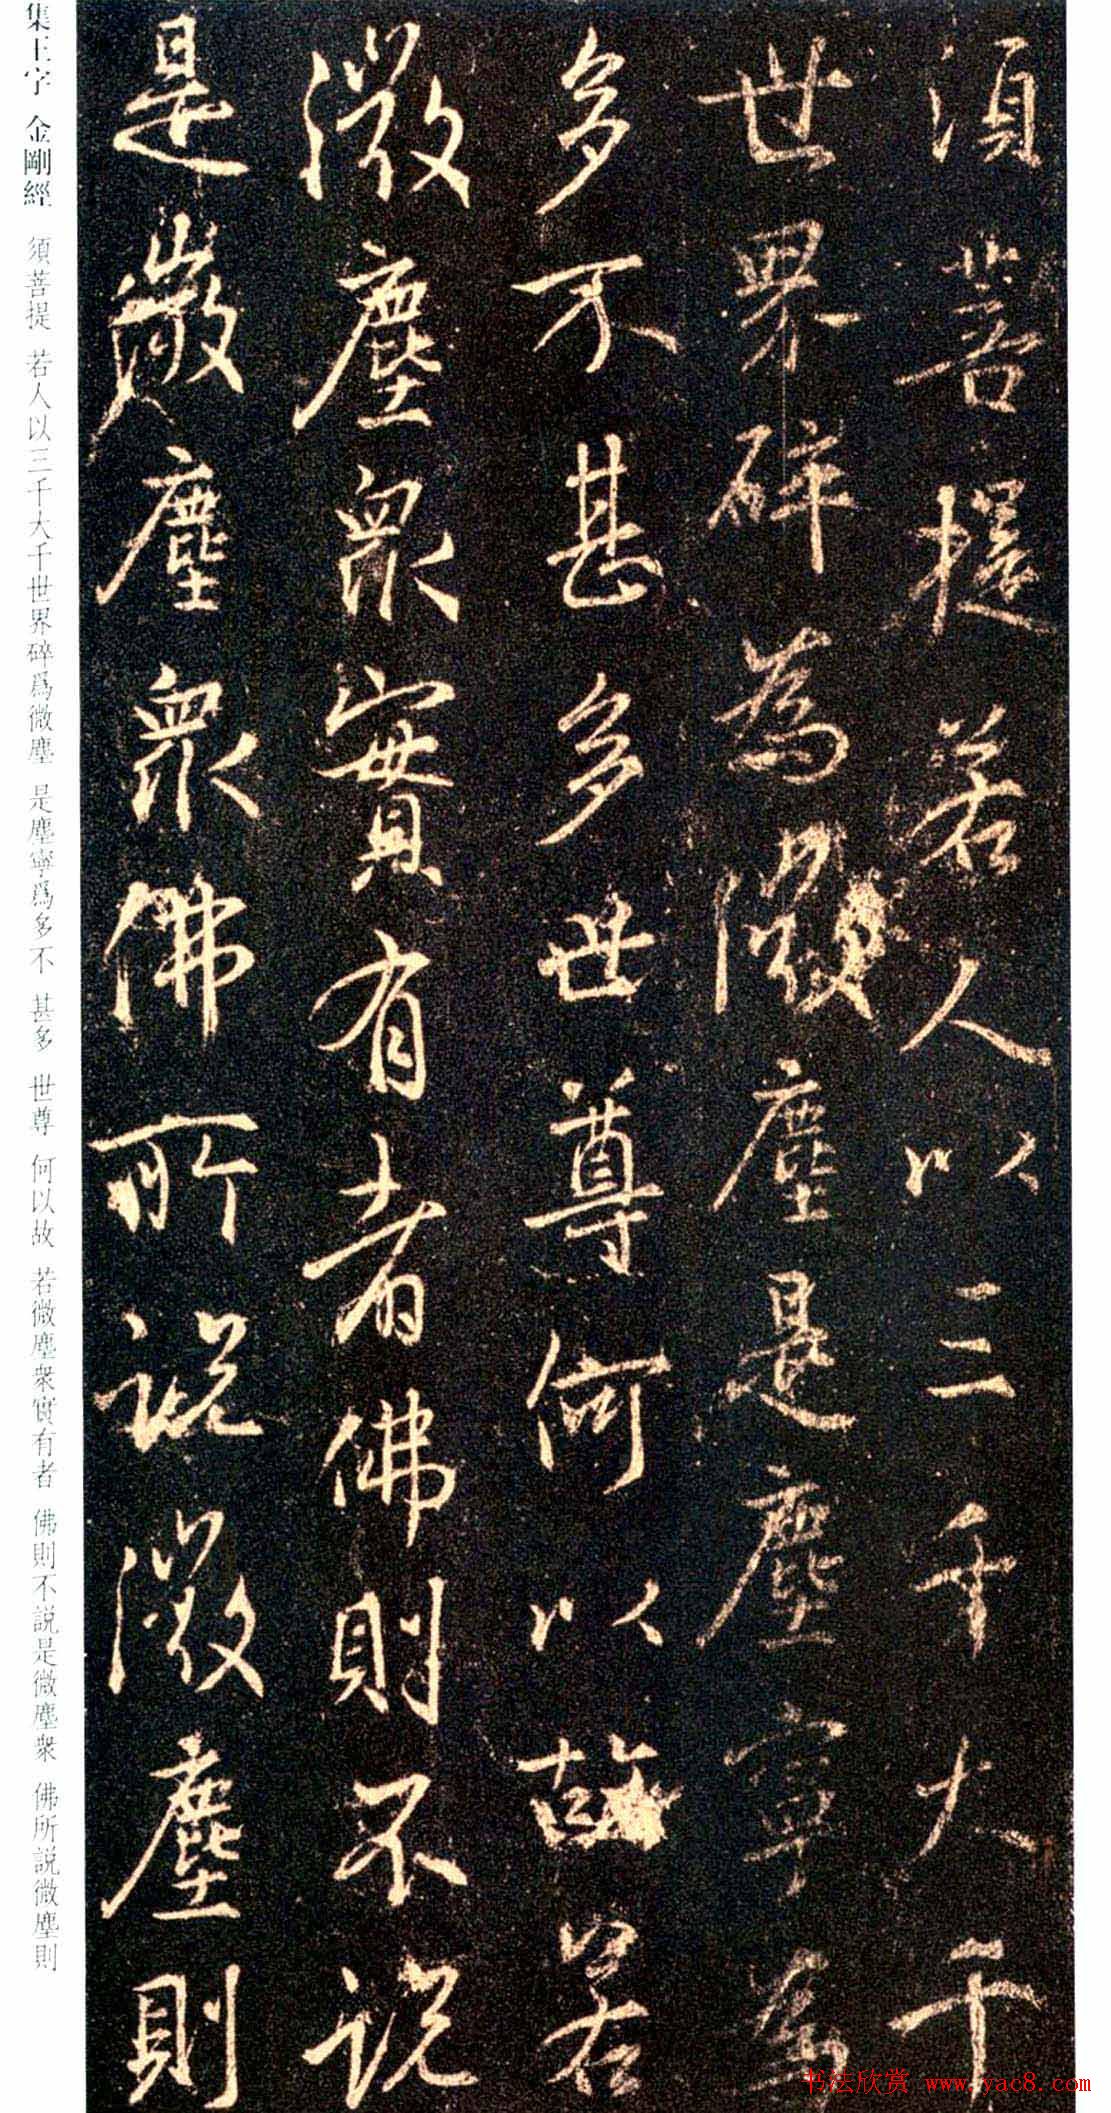 須菩提若人以三千大千
世界碎為微塵是塵寧為
多不甚多世尊何以故若
微塵眾實有者佛則不說
是微塵眾佛所說微塵則
集王字 金剛經 須菩提 若人以三千大千世界碎爲微塵 是塵寧爲多不 甚多 世尊 何以故 若微塵衆實有者 佛則不説是微塵衆 佛所説微塵則
书法欣赏 www.yac8.com